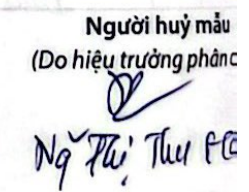 Người huỷ mẫu
(Do hiệu trưởng phân c
Ng Thị Thu